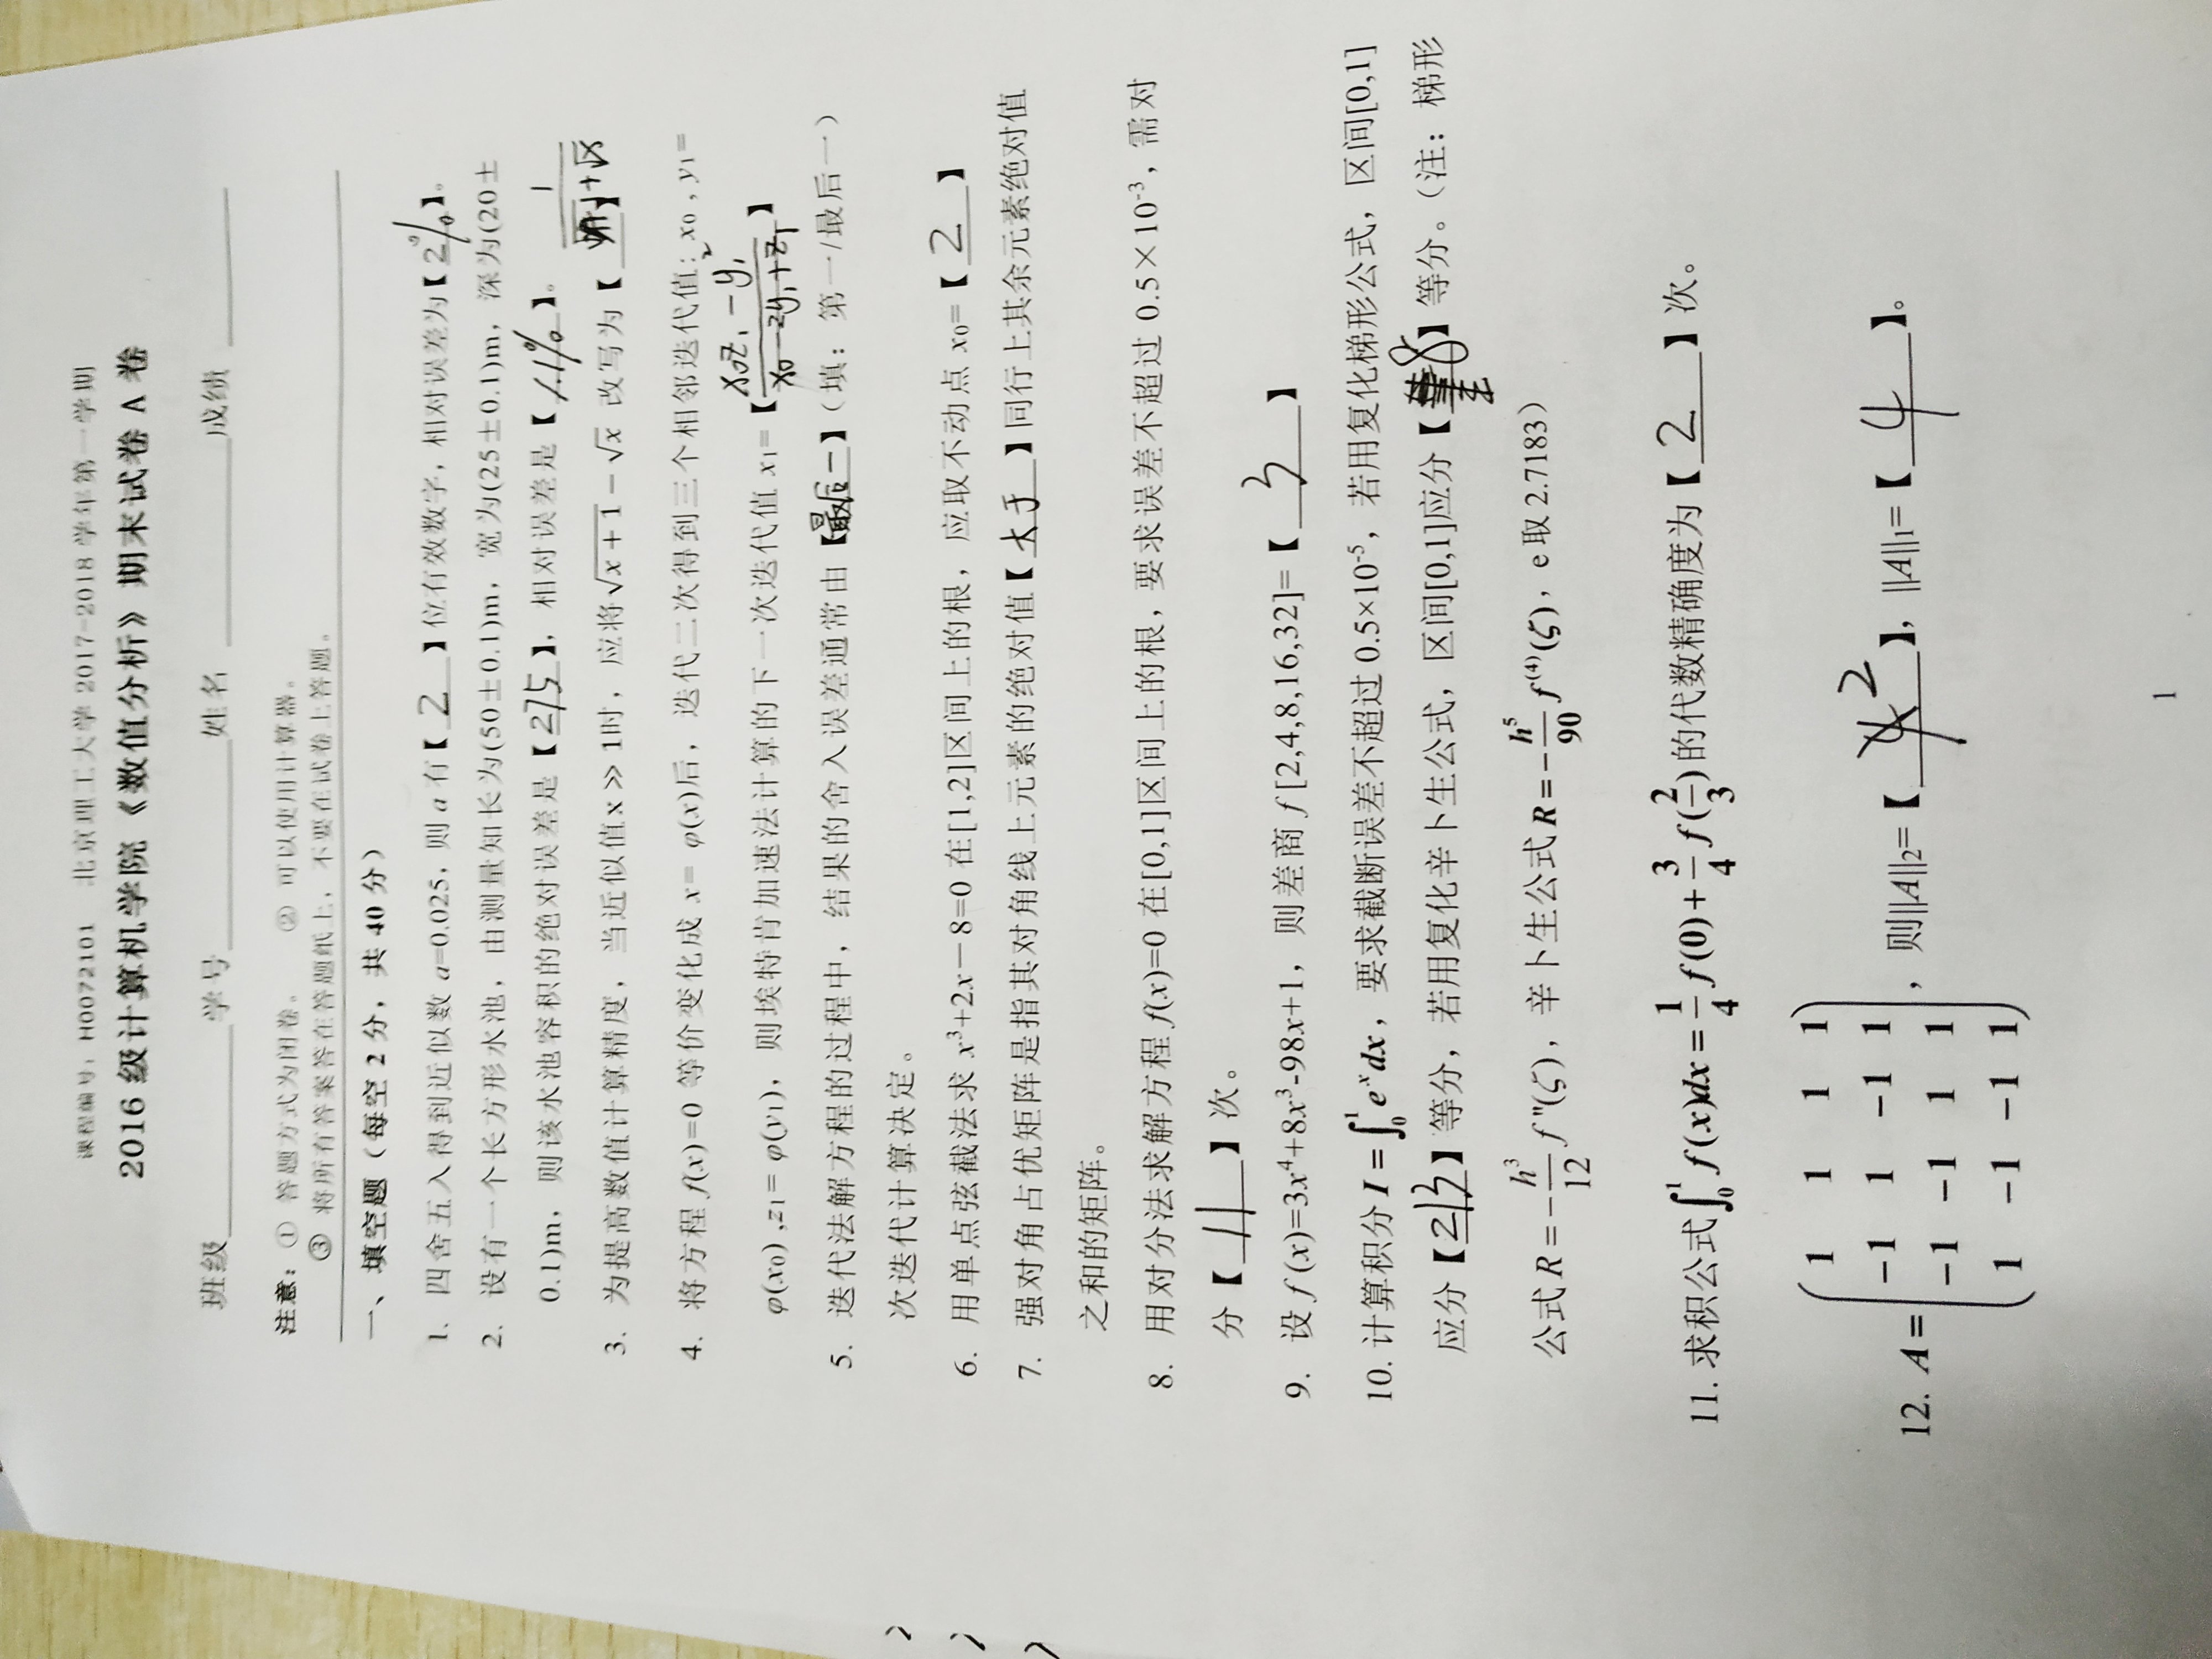 课程编号：H0072101 北京理工大学 2017-2018 学年第一学期
2016 级计算机学院《数值分析》期末试卷 A 卷
班级 学号 姓名 成绩
注意：① 答题方式为闭卷。 ② 可以使用计算器。
③ 将所有答案答在答题纸上，不要在试卷上答题。
一、填空题（每空 2 分，共 40 分）
1. 四舍五入得到近似数 a=0.025，则 a 有【 2 】位有效数字，相对误差为【2%】。
2. 设有一个长方形水池，由测量知长为(50±0.1)m，宽为(25±0.1)m，深为(20±
0.1)m，则该水池容积的绝对误差是【275】，相对误差是【1.1%】。
3. 为提高数值计算精度，当近似值x ≫ 1时，应将√(x+1) − √x 改写为【1/(√(x+1)+√x)】
4. 将方程 f(x)=0 等价变化成 x= φ(x)后，迭代二次得到三个相邻迭代值：x₀ , y₁=
φ(x₀) ,z₁= φ(y₁)，则埃特肯加速法计算的下一次迭代值 x₁=【(x₀z₁ − y₁²)/(x₀−2y₁+z₁)】
5. 迭代法解方程的过程中，结果的舍入误差通常由【最后一】（填：第一/最后一）
次迭代计算决定。
6. 用单点弦截法求 x³+2x－8=0 在[1,2]区间上的根，应取不动点 x₀=【 2 】
7. 强对角占优矩阵是指其对角线上元素的绝对值【 大于 】同行上其余元素绝对值
之和的矩阵。
8. 用对分法求解方程 f(x)=0 在[0,1]区间上的根，要求误差不超过 0.5×10⁻³，需对
分【 11 】次。
9. 设 f (x)=3x⁴+8x³-98x+1，则差商 f [2,4,8,16,32]=【 3 】
10. 计算积分 I = ∫₀¹ eˣ dx，要求截断误差不超过 0.5×10⁻⁵，若用复化梯形公式，区间[0,1]
应分【213】等分，若用复化辛卜生公式，区间[0,1]应分【8】等分。（注：梯形
公式 R = −h³/12 f ''(ζ)，辛卜生公式 R = −h⁵/90 f⁽⁴⁾(ζ)，e 取 2.7183）
11. 求积公式 ∫₀¹ f(x)dx = 1/4 f(0) + 3/4 f(2/3) 的代数精确度为【 2 】次。
1 1 1 1
−1 1 −1 1
12. A = ，则||A||₂=【 2 】，||A||₁=【 4 】。
−1 −1 1 1
1 −1 −1 1
1